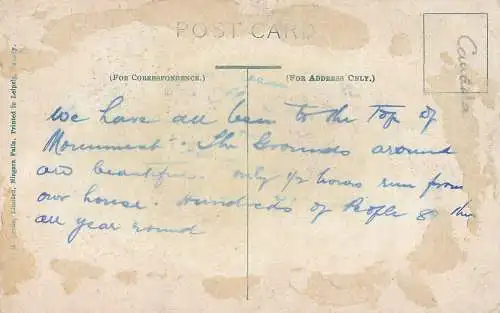 POST CARD
Canada
(For Correspondence.)
(For Address Only.)
We have all been to the Top of
Monument. The Grounds around
are beautiful. only ½ hours run from
our house. Hundreds of People go
all year round
Limited, Niagara Falls. Printed in Leipzig